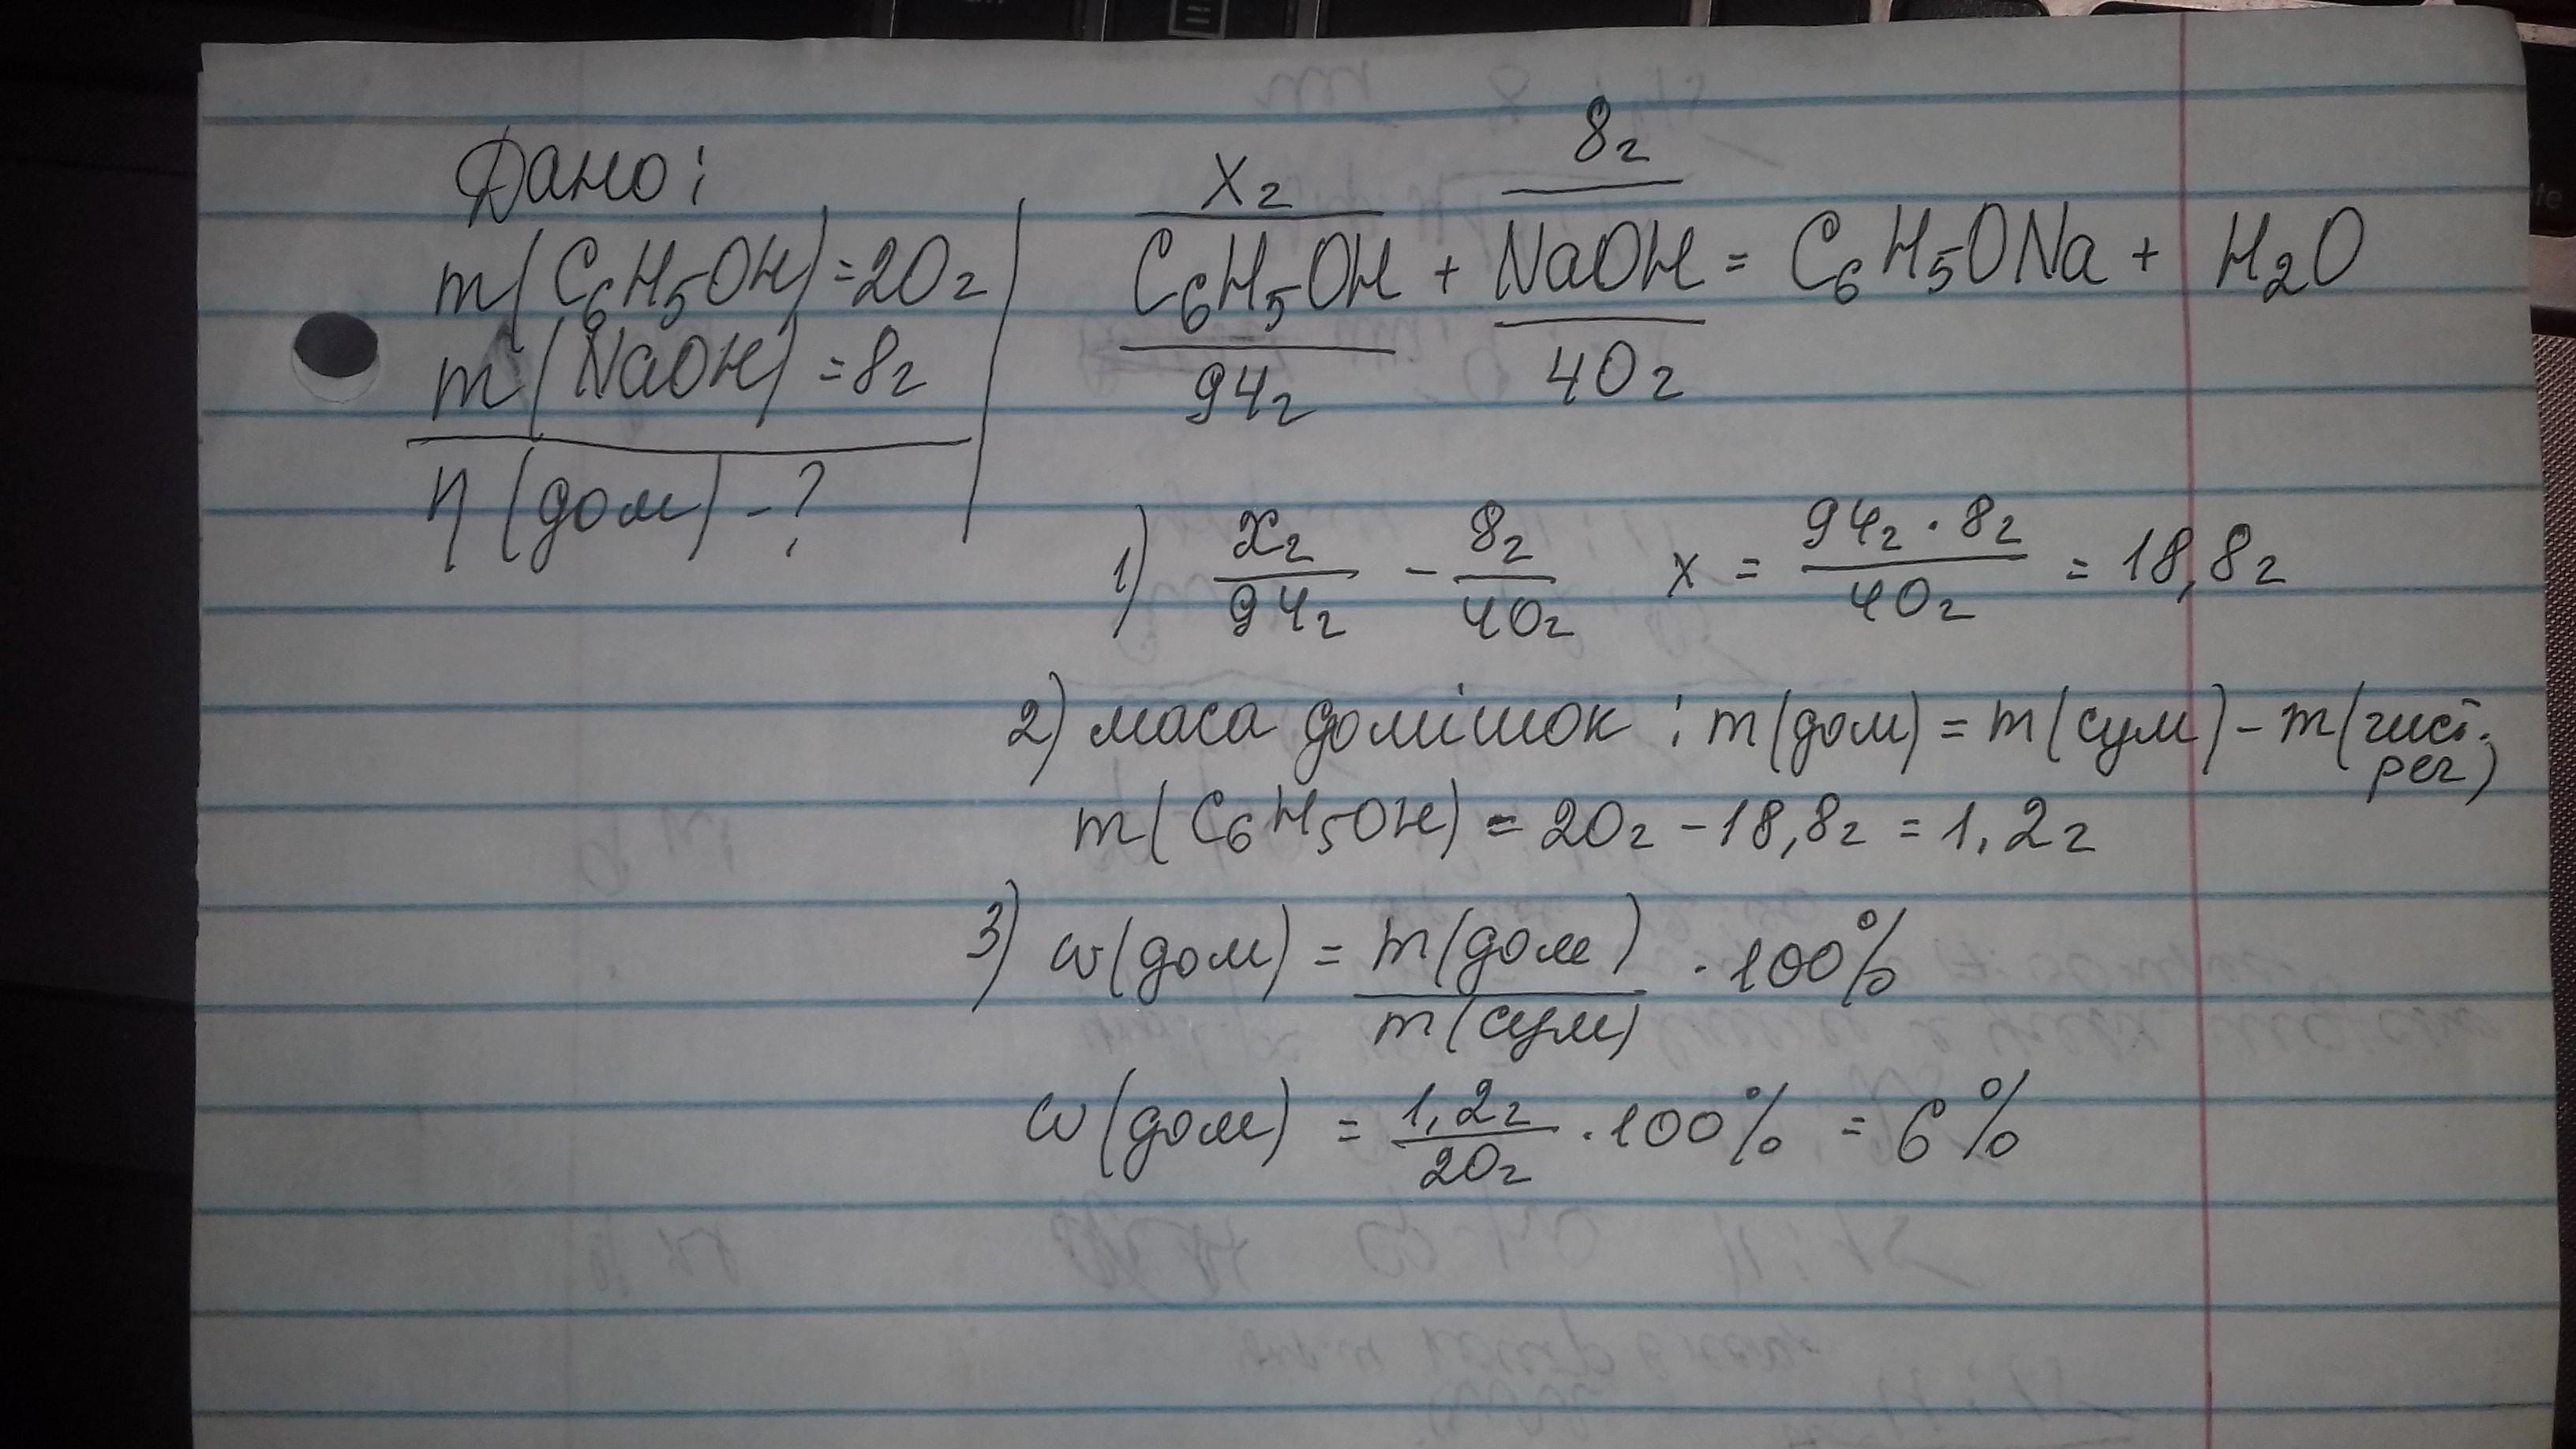 Дано:
m(C6H5OH)=20г
m(NaOH)=8г
η(дом)-?
xг 8г
C6H5OH + NaOH = C6H5ONa + H2O
94г 40г
1) xг/94г - 8г/40г x = 94г·8г/40г = 18,8г
2) маса домішок : m(дом) = m(сум) - m(чист. реч)
m(C6H5OH) = 20г - 18,8г = 1,2г
3) w(дом) = m(дом)/m(сум) · 100%
w(дом) = 1,2г/20г · 100% = 6%